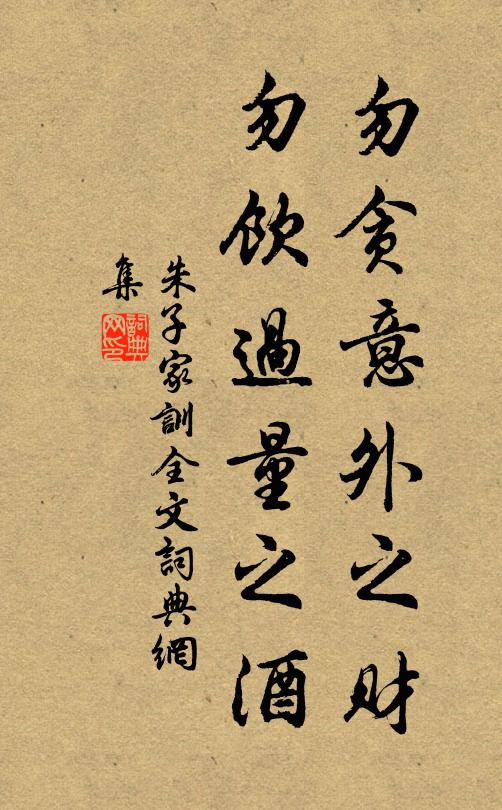 勿貪意外之財
勿飲過量之酒
朱子家訓全文詞典網
集
詞典网印